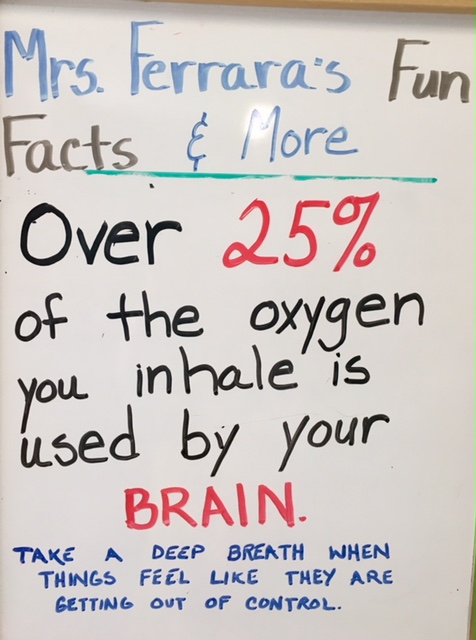 Mrs. Ferrara's Fun
Facts & More
Over 25%
of the oxygen
you inhale is
used by your
BRAIN.
TAKE A DEEP BREATH WHEN
THINGS FEEL LIKE THEY ARE
GETTING OUT OF CONTROL.